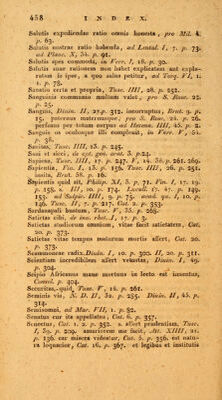 458 INDEX.
Salutis expediendae ratio omnis honesta, pro Mil. 4.
p. 63.
Salutis nostrae ratio habenda, ad Lentul. I, 7. p. 73.
ad Planc. X, 34. p. 91.
Salutis spes commodi, in Verr. I, 18. p. 30.
Salutis suae rationem non habet explicatam aut explo-
ratam is ipse, a quo salus petitur, ad Torq. VI, 1.
1. p. 79.
Sanatio certa et propria, Tusc. IIII, 28. p. 252.
Sanguinis communis multum valet, pro S. Rosc. 22.
p. 25.
Sanguis, Divin. II, 27. p. 312. incorruptus, Brut. 9. p.
15. paternus maternusque, pro S. Rosc. 24. p. 26.
perfusus per totum corpus ad Herenn. IIII, 45. p. 2.
Sanguis in scelusque illi complacuit, in Verr. V, 52.
p. 38.
Sanitas, Tusc. III, 23. p. 245.
Sani et sicci, de opt. gen. orat. 3. p. 24.
Sapiens, Tusc. IIII, 17. p. 247. V, 14. 38. p. 261. 269.
Sapientia, Fin. I, 13. p. 159. Tusc. IIII, 26. p. 251.
invita, Brut. 58. p. 16.
Sapientis quid sit, Philipp. XI, 5. p. 71. Fin. I, 17. 19.
p. 158. s. III, 10. p. 174. Lucull. 17. 47. p. 149.
153. ad Sulpic. IIII, 9. p. 75. acad. qu. I, 10. p.
146. Tusc. II, 7. p. 217. Cat. 2. p. 352.
Sardanapali bustum, Tusc. V, 35. p. 268.
Satietas cibi, de inv. rhet. I, 17. p. 3.
Satietas studiorum omnium, vitae facit satietatem, Cat.
20. p. 373.
Satietas vitae tempus maturum mortis affert, Cat. 20.
p. 373.
Scammoneae radix, Divin. I, 10. p. 302. II, 20. p. 311.
Scientiam incredibilem affert vetustas, Divin. I, 49.
p. 304.
Scipio Africanus mane mortuus in lecto est inventus,
Consol. p. 404.
Securitas, quid, Tusc. V, 14. p. 261.
Seminis vis, N. D. II, 32. p. 285. Divin. II, 45. p.
314.
Semisomni, ad Mar. VII, 1. p. 82.
Senatus cur ita appellatus, Cat. 6. p. 357.
Senectus, Cat. 1. 2. p. 352. s. affert prudentiam, Tusc.
I, 39. p. 209. amariorem me facit, Att. XIIII, 21.
p. 136. cur misera videatur, Cat. 5. p. 356. est natu-
ra loquacior, Cat. 16. p. 367. et legibus et institutis